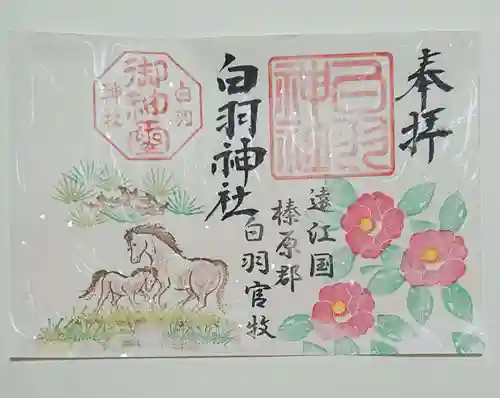 奉拝
遠江国
榛原郡
白羽官牧
白羽神社
白羽
御神璽
神社